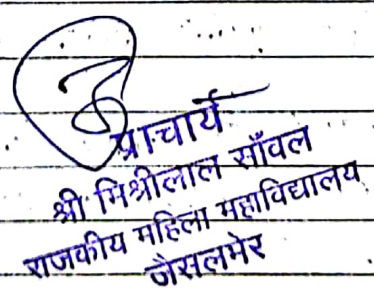 प्राचार्य
श्री मिश्रीलाल साँवल
राजकीय महिला महाविद्यालय
जैसलमेर